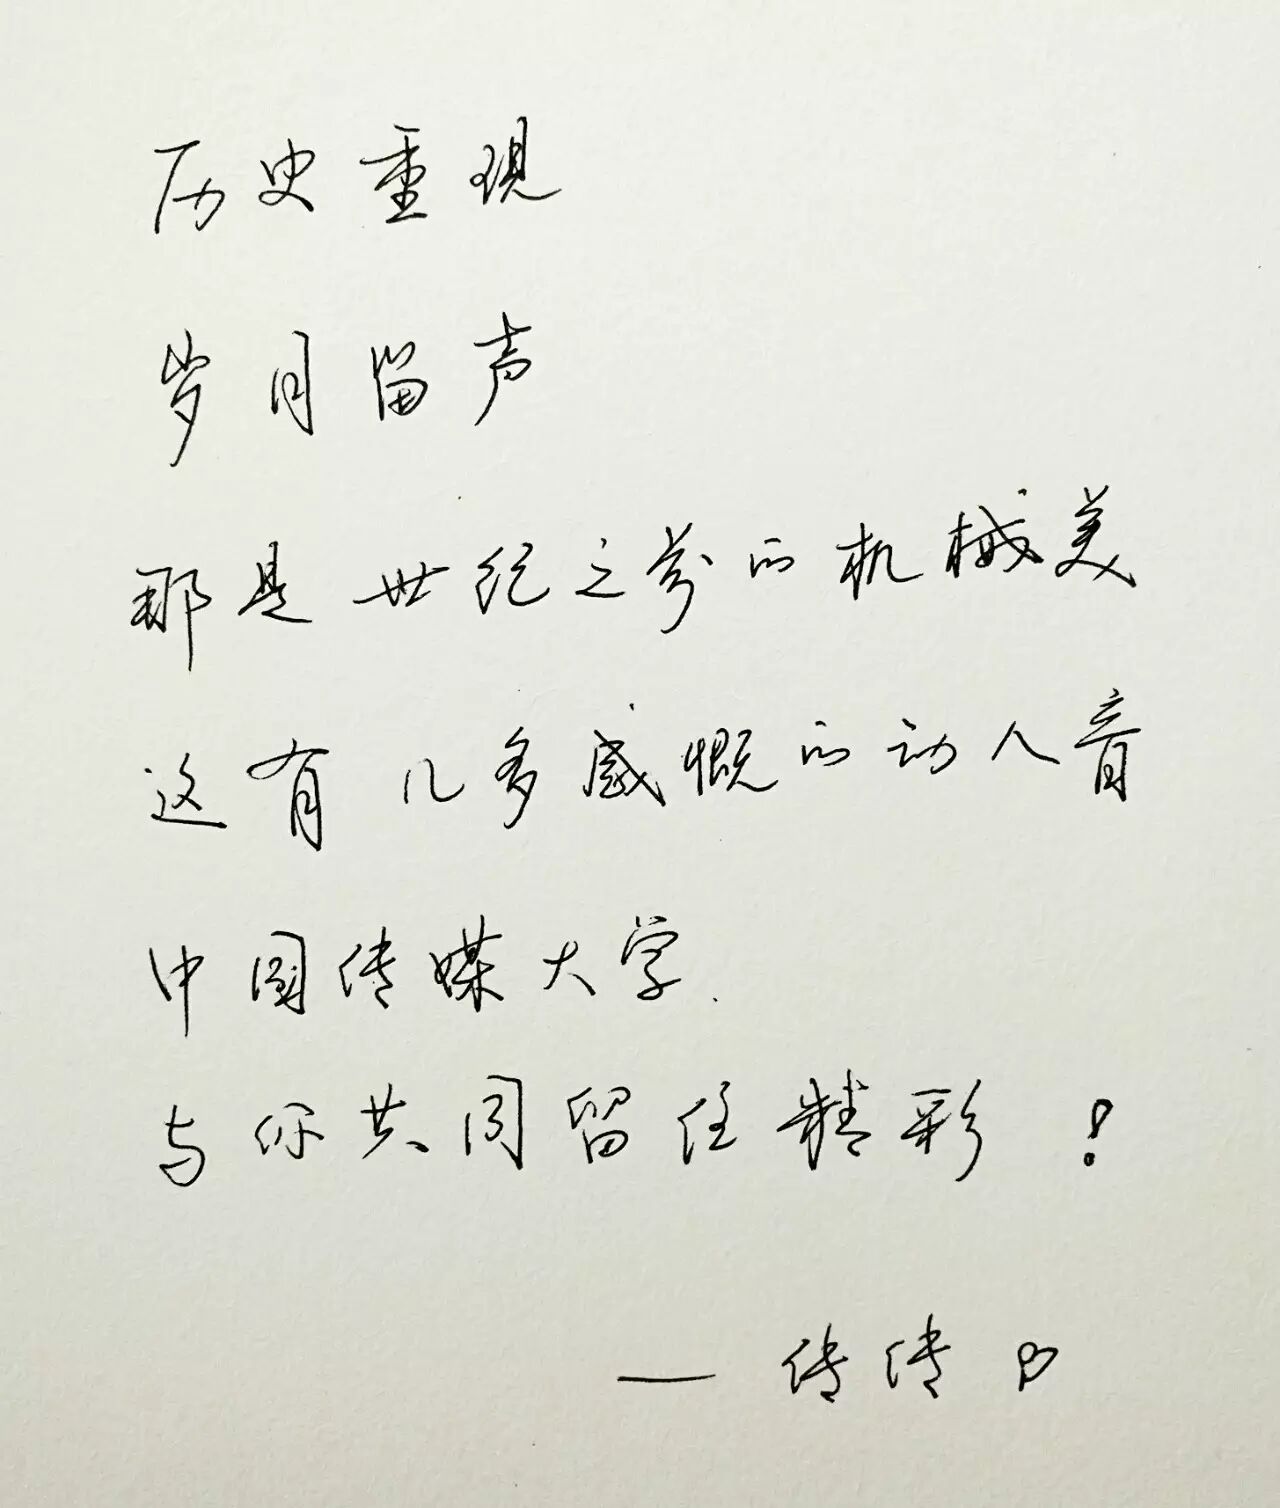 历史重现
岁月留声
那是世纪之芬的机械美
这有几多感慨的动人音
中国传媒大学
与你共同留住精彩！
— 传传